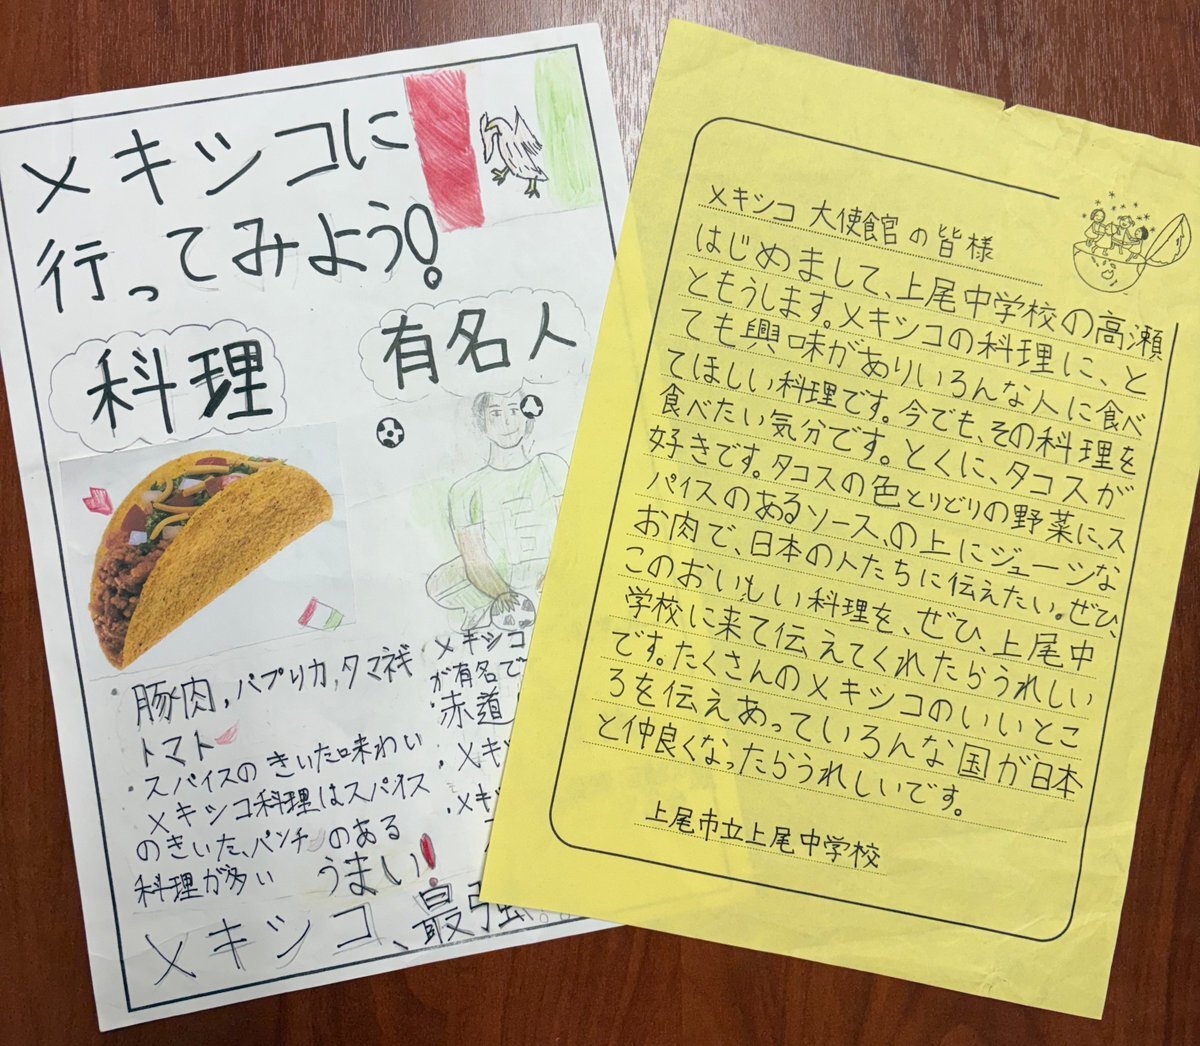 メキシコに
行ってみよう!
科理
有名人
豚肉,パプリカ,タマネギ
トマト
スパイスのきいた味わい
メキシコ料理はスパイス
のきいた、パンチのある
料理が多い
うまい!
メキシコ
が有名で
赤道
・メキ
・メキ
メキシコ、最強
メキシコ 大使館の皆様
はじめまして、上尾中学校の高瀬
ともうします。メキシコの料理に、と
ても興味がありいろんな人に食べ
てほしい料理です。今でも、その料理を
食べたい気分です。とくに、タコスが
好きです。タコスの色とりどりの野菜に、ス
パイスのあるソース、の上にジューシな
お肉で、日本の人たちに伝えたい。ぜひ、
このおいしい料理を、ぜひ、上尾中
学校に来て伝えてくれたらうれしい
です。たくさんのメキシコのいいとこ
ろを伝えあっていろんな国が日本
と仲良くなったらうれしいです。
上尾市立上尾中学校